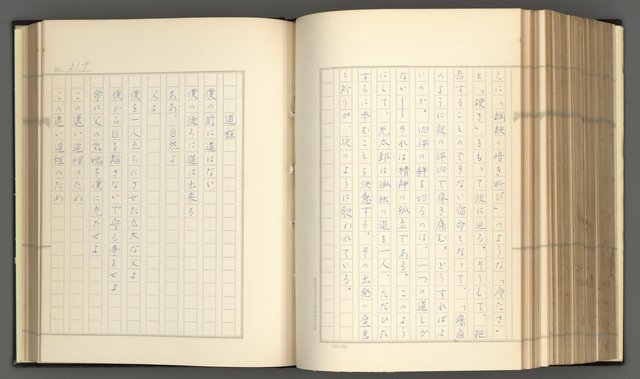 えに「鋼鉄の暗き叫び」のような「冷たさ」
と「硬さ」をもって彼に迫る。そうして、抱
合することのできない宿命となって、「癌疽」
のように彼の体内で疼き痛む。どうすればよ
いのか。四條の絆を切るのは、一つの道しか
ない――それは精神の孤立である。このよう
にして、光太郎は孤独の道を一人、ただひた
すらに歩むことを決意する。その出発の宣言
と祈りが、次のように歌われている。
No. 217
道程
僕の前に道はない
僕の後ろに道は出来る
ああ、自然よ
父よ
僕を一人立ちにさせた広大な父よ
僕から目を離さないで守る事をせよ
常に父の気魄を僕に充たせよ
この遠い道程のため
この遠い道程のため